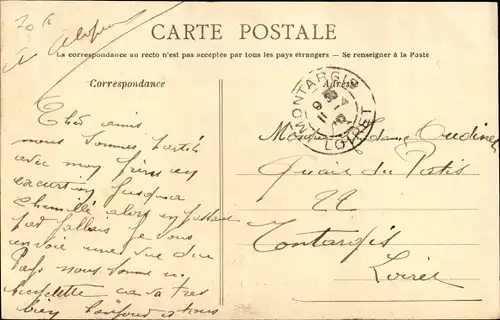 CARTE POSTALE
La correspondance au recto n'est pas acceptée par tous les pays étrangers — Se renseigner à la Poste
Correspondance
Adresse
MONTARGIS
LOIRET
Cher amis
nous sommes partis
avec mon frère en
excurtion jusqua
Chemillé alors en passant
par je vous
envoie une vue du
Pays nous somme en
va tres
bien Bonjour a tous
Monsieur Madame Oudinet
Quai du Patis
22
Montargis
Loiret